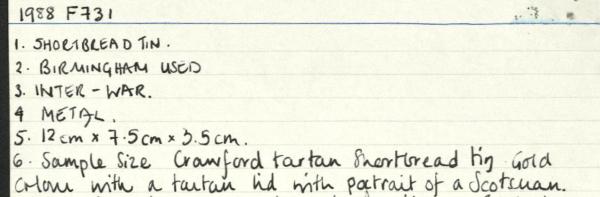 1988 F731
1. SHORTBREAD TIN.
2. BIRMINGHAM USED
3. INTER-WAR.
4 METAL.
5. 12cm x 7.5cm x 3.5cm.
6. Sample Size Crawford tartan Shortbread tin Gold
Colour with a tartan lid with portrait of a Scotsman.